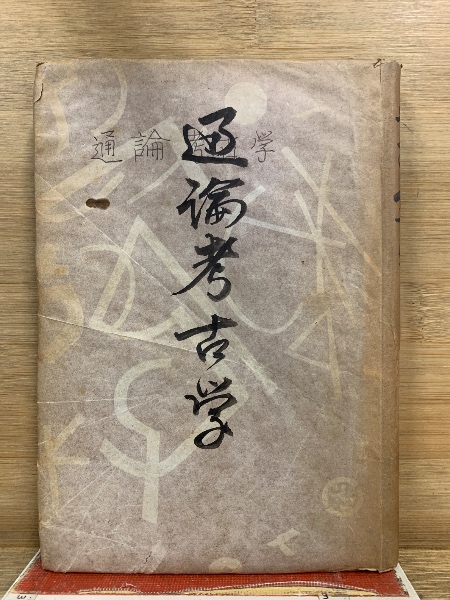 通論考古学
通論考古学